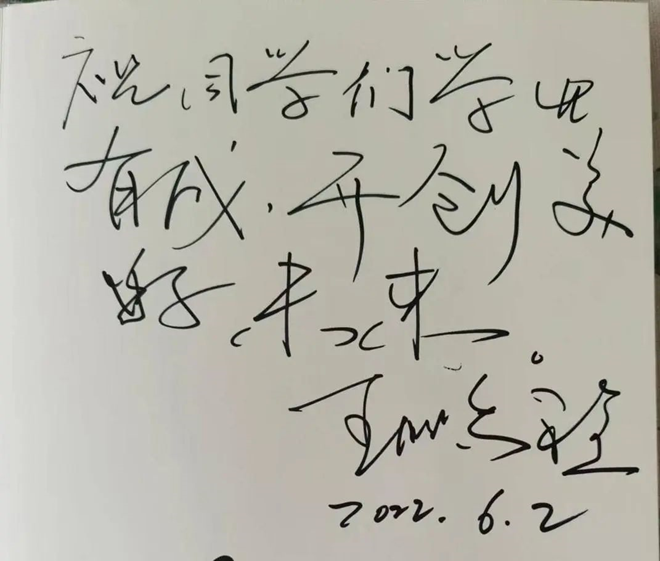 祝同学们学业
有成,开创美
好未来。
2022.6.2